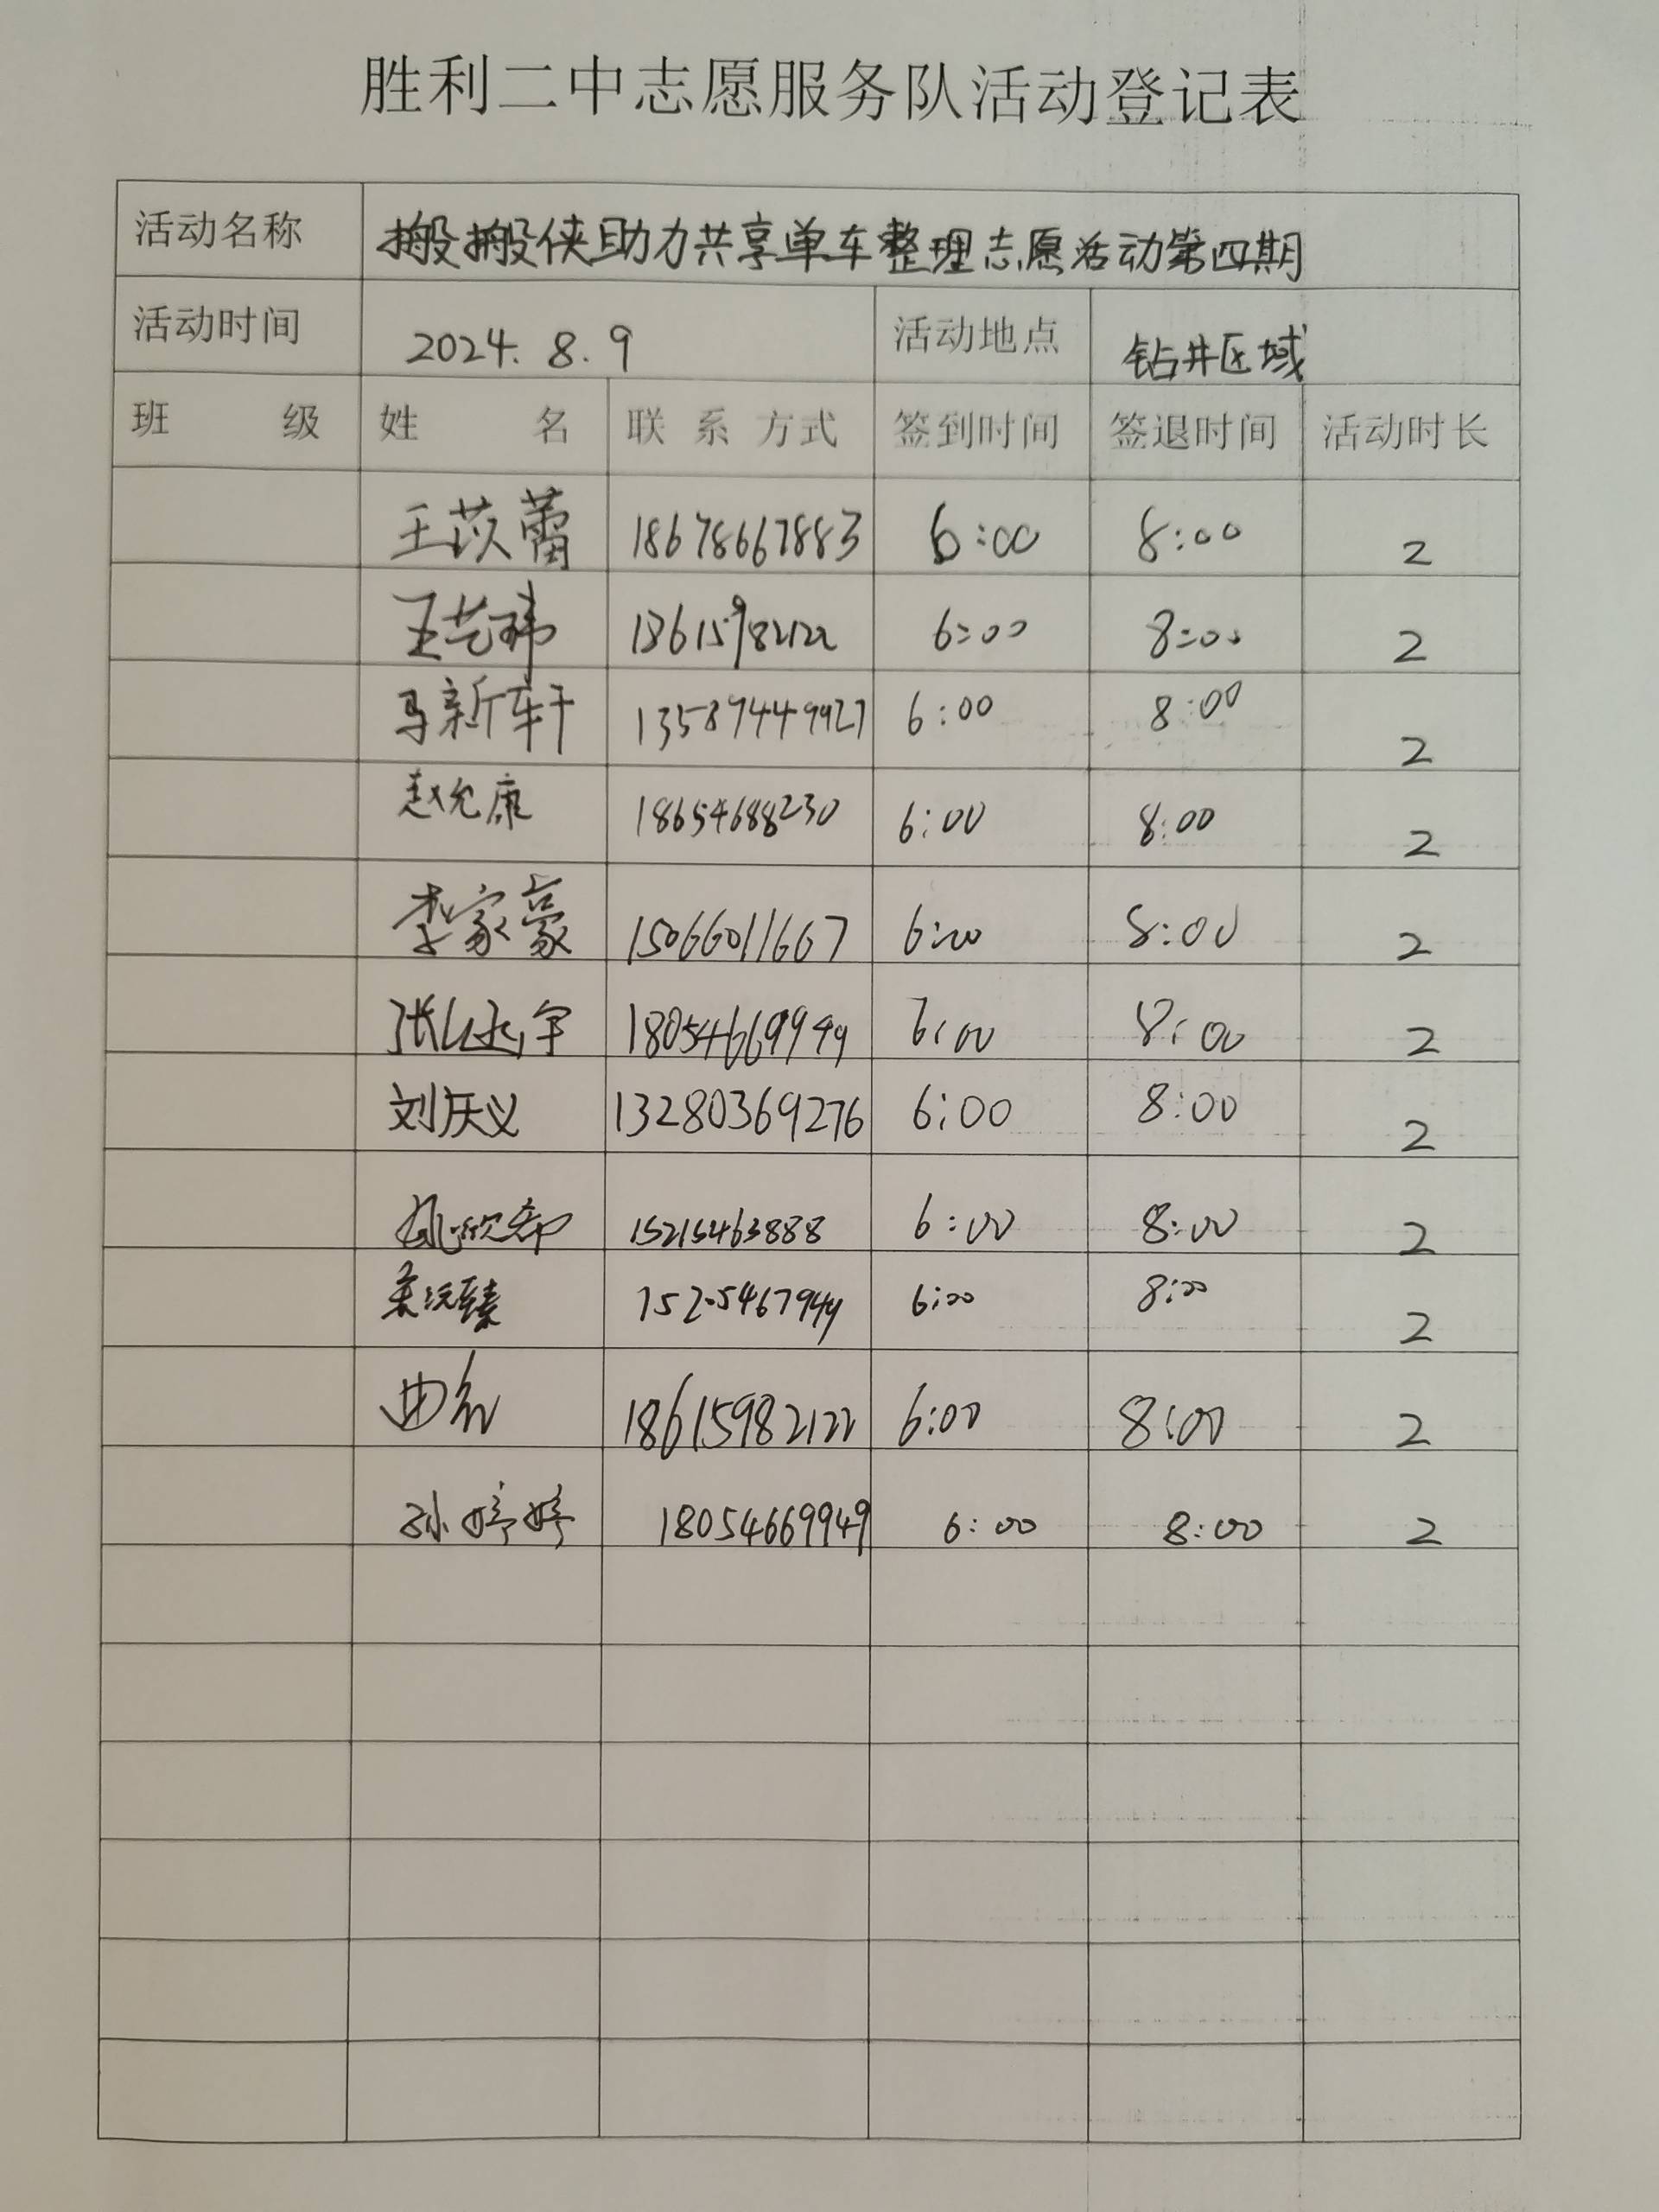 胜利二中志愿服务队活动登记表
活动名称 搬搬侠助力共享单车整理志愿活动第四期
活动时间 2024.8.9 活动地点 钻井区域
班级 姓名 联系方式 签到时间 签退时间 活动时长
王苡蕾 18678667883 6:00 8:00 2
王艺玮 18615982122 6:00 8:00 2
马新轩 13589449927 6:00 8:00 2
赵允康 18654688230 6:00 8:00 2
李家豪 15066011667 6:00 8:00 2
18054669949 6:00 8:00 2
刘庆义 13280369276 6:00 8:00 2
15215463888 6:00 8:00 2
15205467944 6:00 8:00 2
18615982122 6:00 8:00 2
孙婷婷 18054669949 6:00 8:00 2